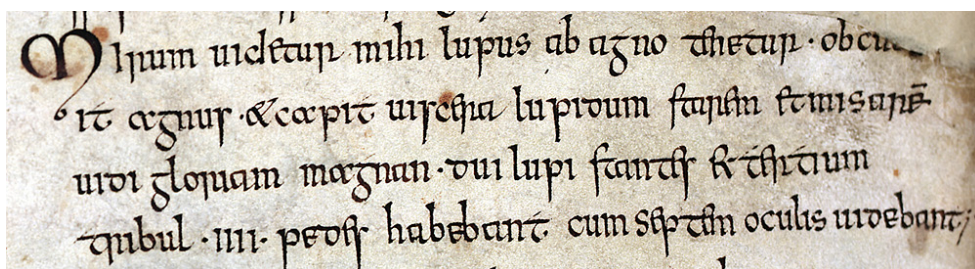 Mirum uidetur mihi lupus ab agno tenetur · obcu
it agnus · & capit uiscera lupi dum starem et misarē
uidi gloriam magnan · dui lupi stantes & tertium
tribul · iiii · pedes habebant cum septem oculis uidebant ;